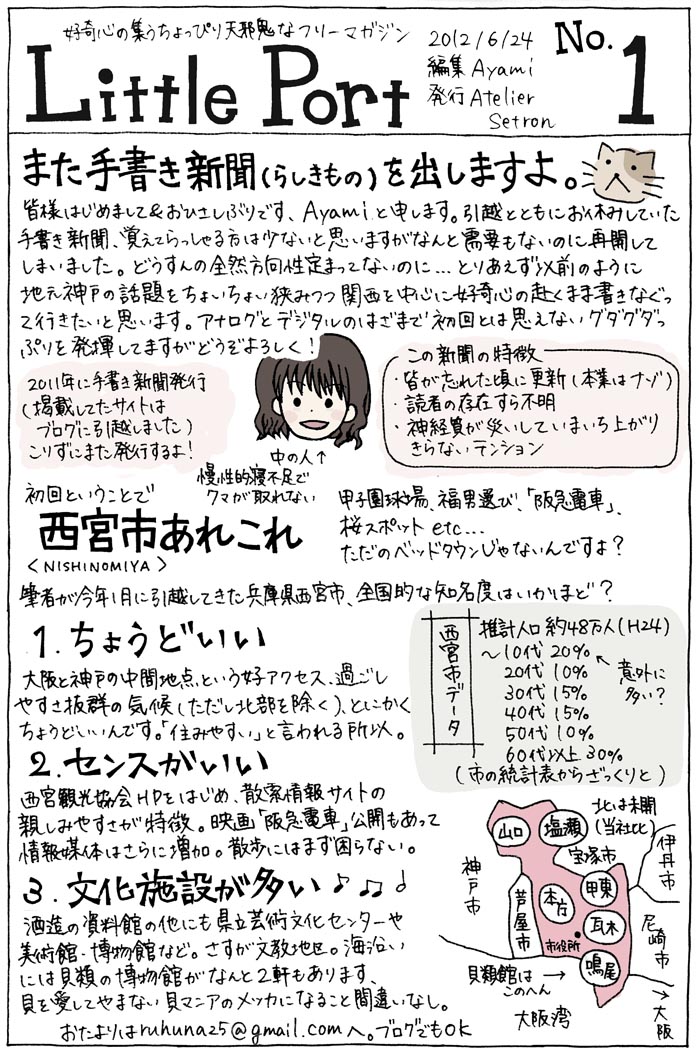 好奇心の集うちょっぴり天邪鬼なフリーマガジン
Little Port
2012/6/24
編集 Ayami
発行 Atelier
Setron
No.1
また手書き新聞(らしきもの)を出しますよ。
皆様はじめまして&おひさしぶりです、Ayamiと申します。引越とともにお休みしていた
手書き新聞、覚えてらっしゃる方は少ないと思いますがなんと需要もないのに再開して
しまいました。どうすんの全然方向性定まってないのに…とりあえず以前のように
地元神戸の話題をちょいちょい挟みつつ関西を中心に好奇心の赴くまま書きなぐっ
て行きたいと思います。アナログとデジタルのはざまで初回とは思えないグダグダっ
ぷりを発揮してますがどうぞよろしく!
2011年に手書き新聞発行
(掲載してたサイトは
ブログに引越しました)
こりずにまた発行するよ!
中の人↑
慢性的寝不足で
クマが取れない
この新聞の特徴
・皆が忘れた頃に更新(本業はナゾ)
・読者の存在すら不明
・神経質が災いしていまいち上がり
きらないテンション
初回ということで
西宮市あれこれ
<NISHINOMIYA>
甲子園球場、福男選び、「阪急電車」、
桜スポット etc...
ただのベッドタウンじゃないんですよ?
筆者が今年1月に引越してきた兵庫県西宮市、全国的な知名度はいかほど?
1.ちょうどいい
大阪と神戸の中間地点という好アクセス、過ごし
やすさ抜群の気候(ただし北部を除く)、とにかく
ちょうどいいんです。「住みやすい」と言われる所以。
西宮市データ
推計人口 約48万人(H24)
~10代 20%
20代 10%
30代 15%
40代 15%
50代 10%
60代以上 30%
意外に
多い?
(市の統計表からざっくりと)
2.センスがいい
西宮観光協会HPをはじめ、散策情報サイトの
親しみやすさが特徴。映画「阪急電車」公開もあって
情報媒体はさらに増加。散歩にはまず困らない。
3.文化施設が多い♪♫♩
酒造の資料館の他にも県立芸術文化センターや
美術館・博物館など。さすが文教地区。海沿い
には貝類の博物館がなんと2軒もあります、
貝を愛してやまない貝マニアのメッカになること間違いなし。
北は未開
(当社比)
山口
塩瀬
宝塚市
伊丹市
神戸市
芦屋市
本庁
甲東
瓦木
市役所
鳴尾
尼崎市
貝類館は→
このへん
大阪湾
大阪
おたよりはruhuna25@gmail.comへ。ブログでもOK